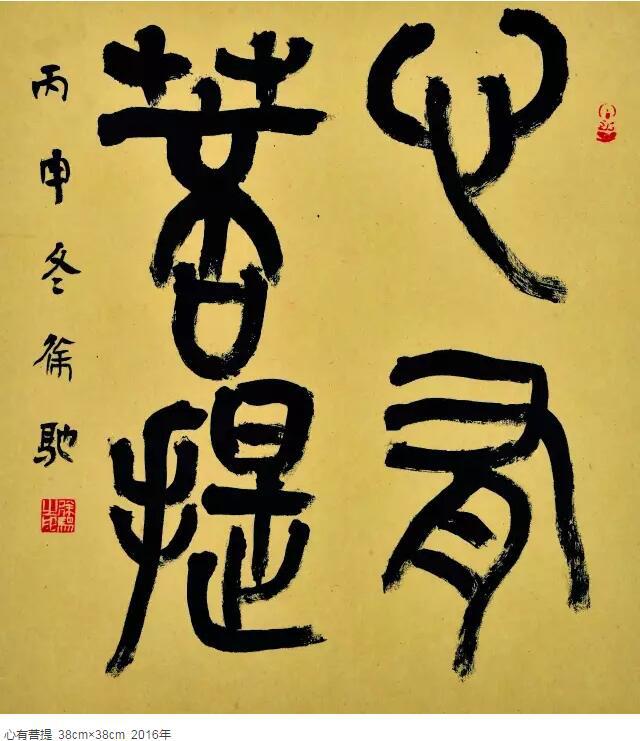 心有
菩提
丙申冬徐驰
心有菩提 38cm×38cm 2016年